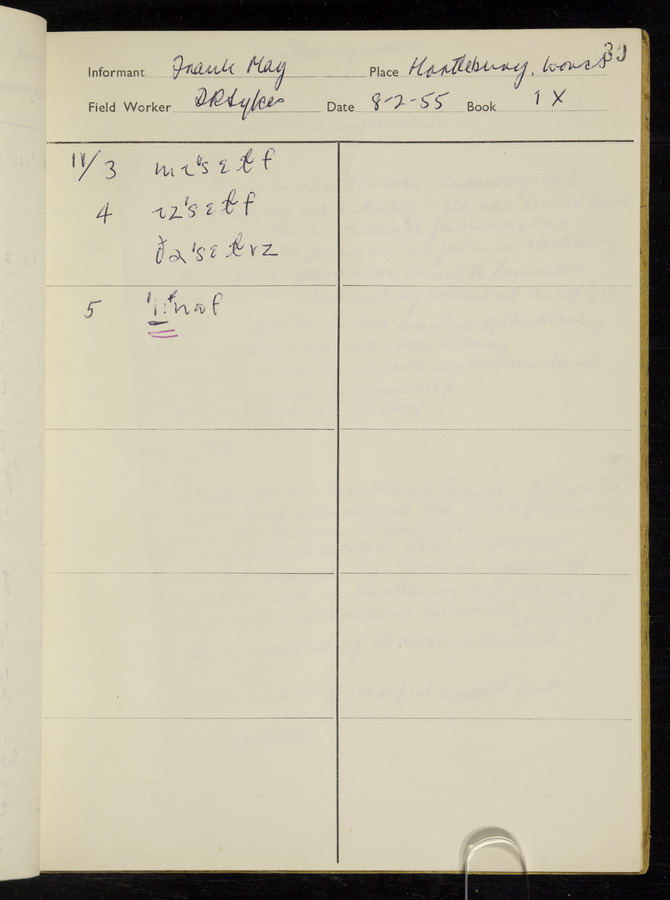 39
Informant Frank May Place Hartlebury, Worcs
Field Worker D R Sykes Date 8-2-55 Book IX
11/3 mɪˈsɛɫf
4 ɪzˈsɛɫf
ðəˈsɛɫvz
5